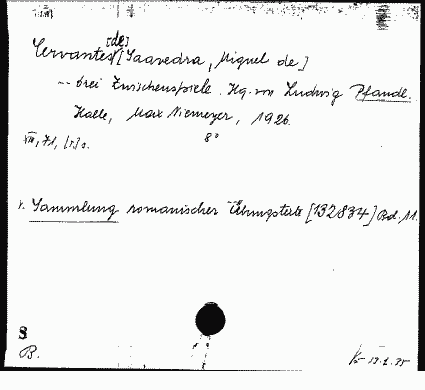 [de]
Cervantes [Saavedra, Miguel de]
-- drei Zwischenspiele. Hg. von Ludwig Pfandl.
Halle, Max Niemeyer, 1926.
VIII, 71, [1] s. 8°
v. Sammlung romanischer Übungstexte [132834] Bd. 11.
8
B.